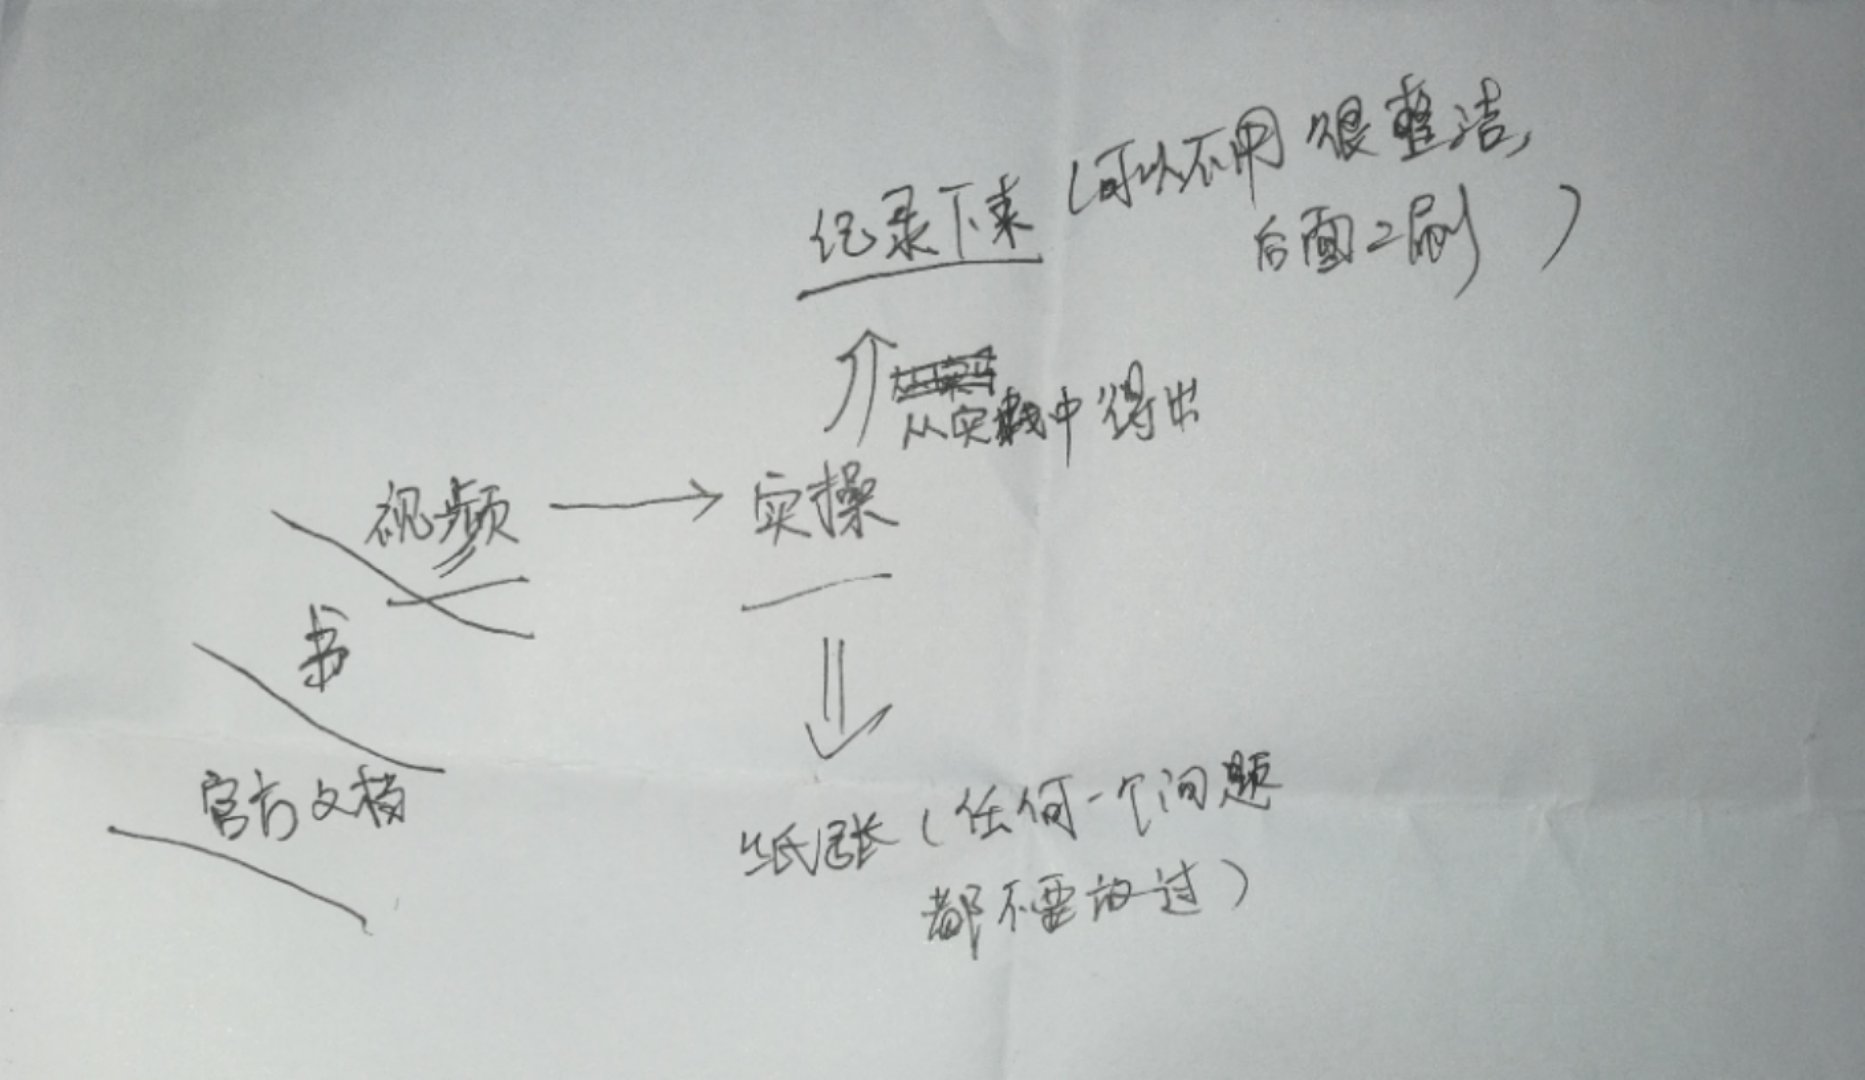 记录下来(可以不用很整洁,
后面二刷)
从实践中得出
视频 → 实操
书
官方文档
纸张(任何一个问题
都不要放过)